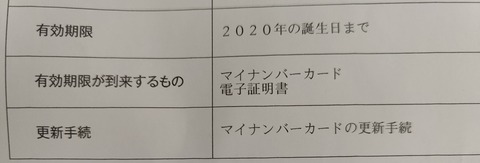 有効期限
２０２０年の誕生日まで
有効期限が到来するもの
マイナンバーカード
電子証明書
更新手続
マイナンバーカードの更新手続